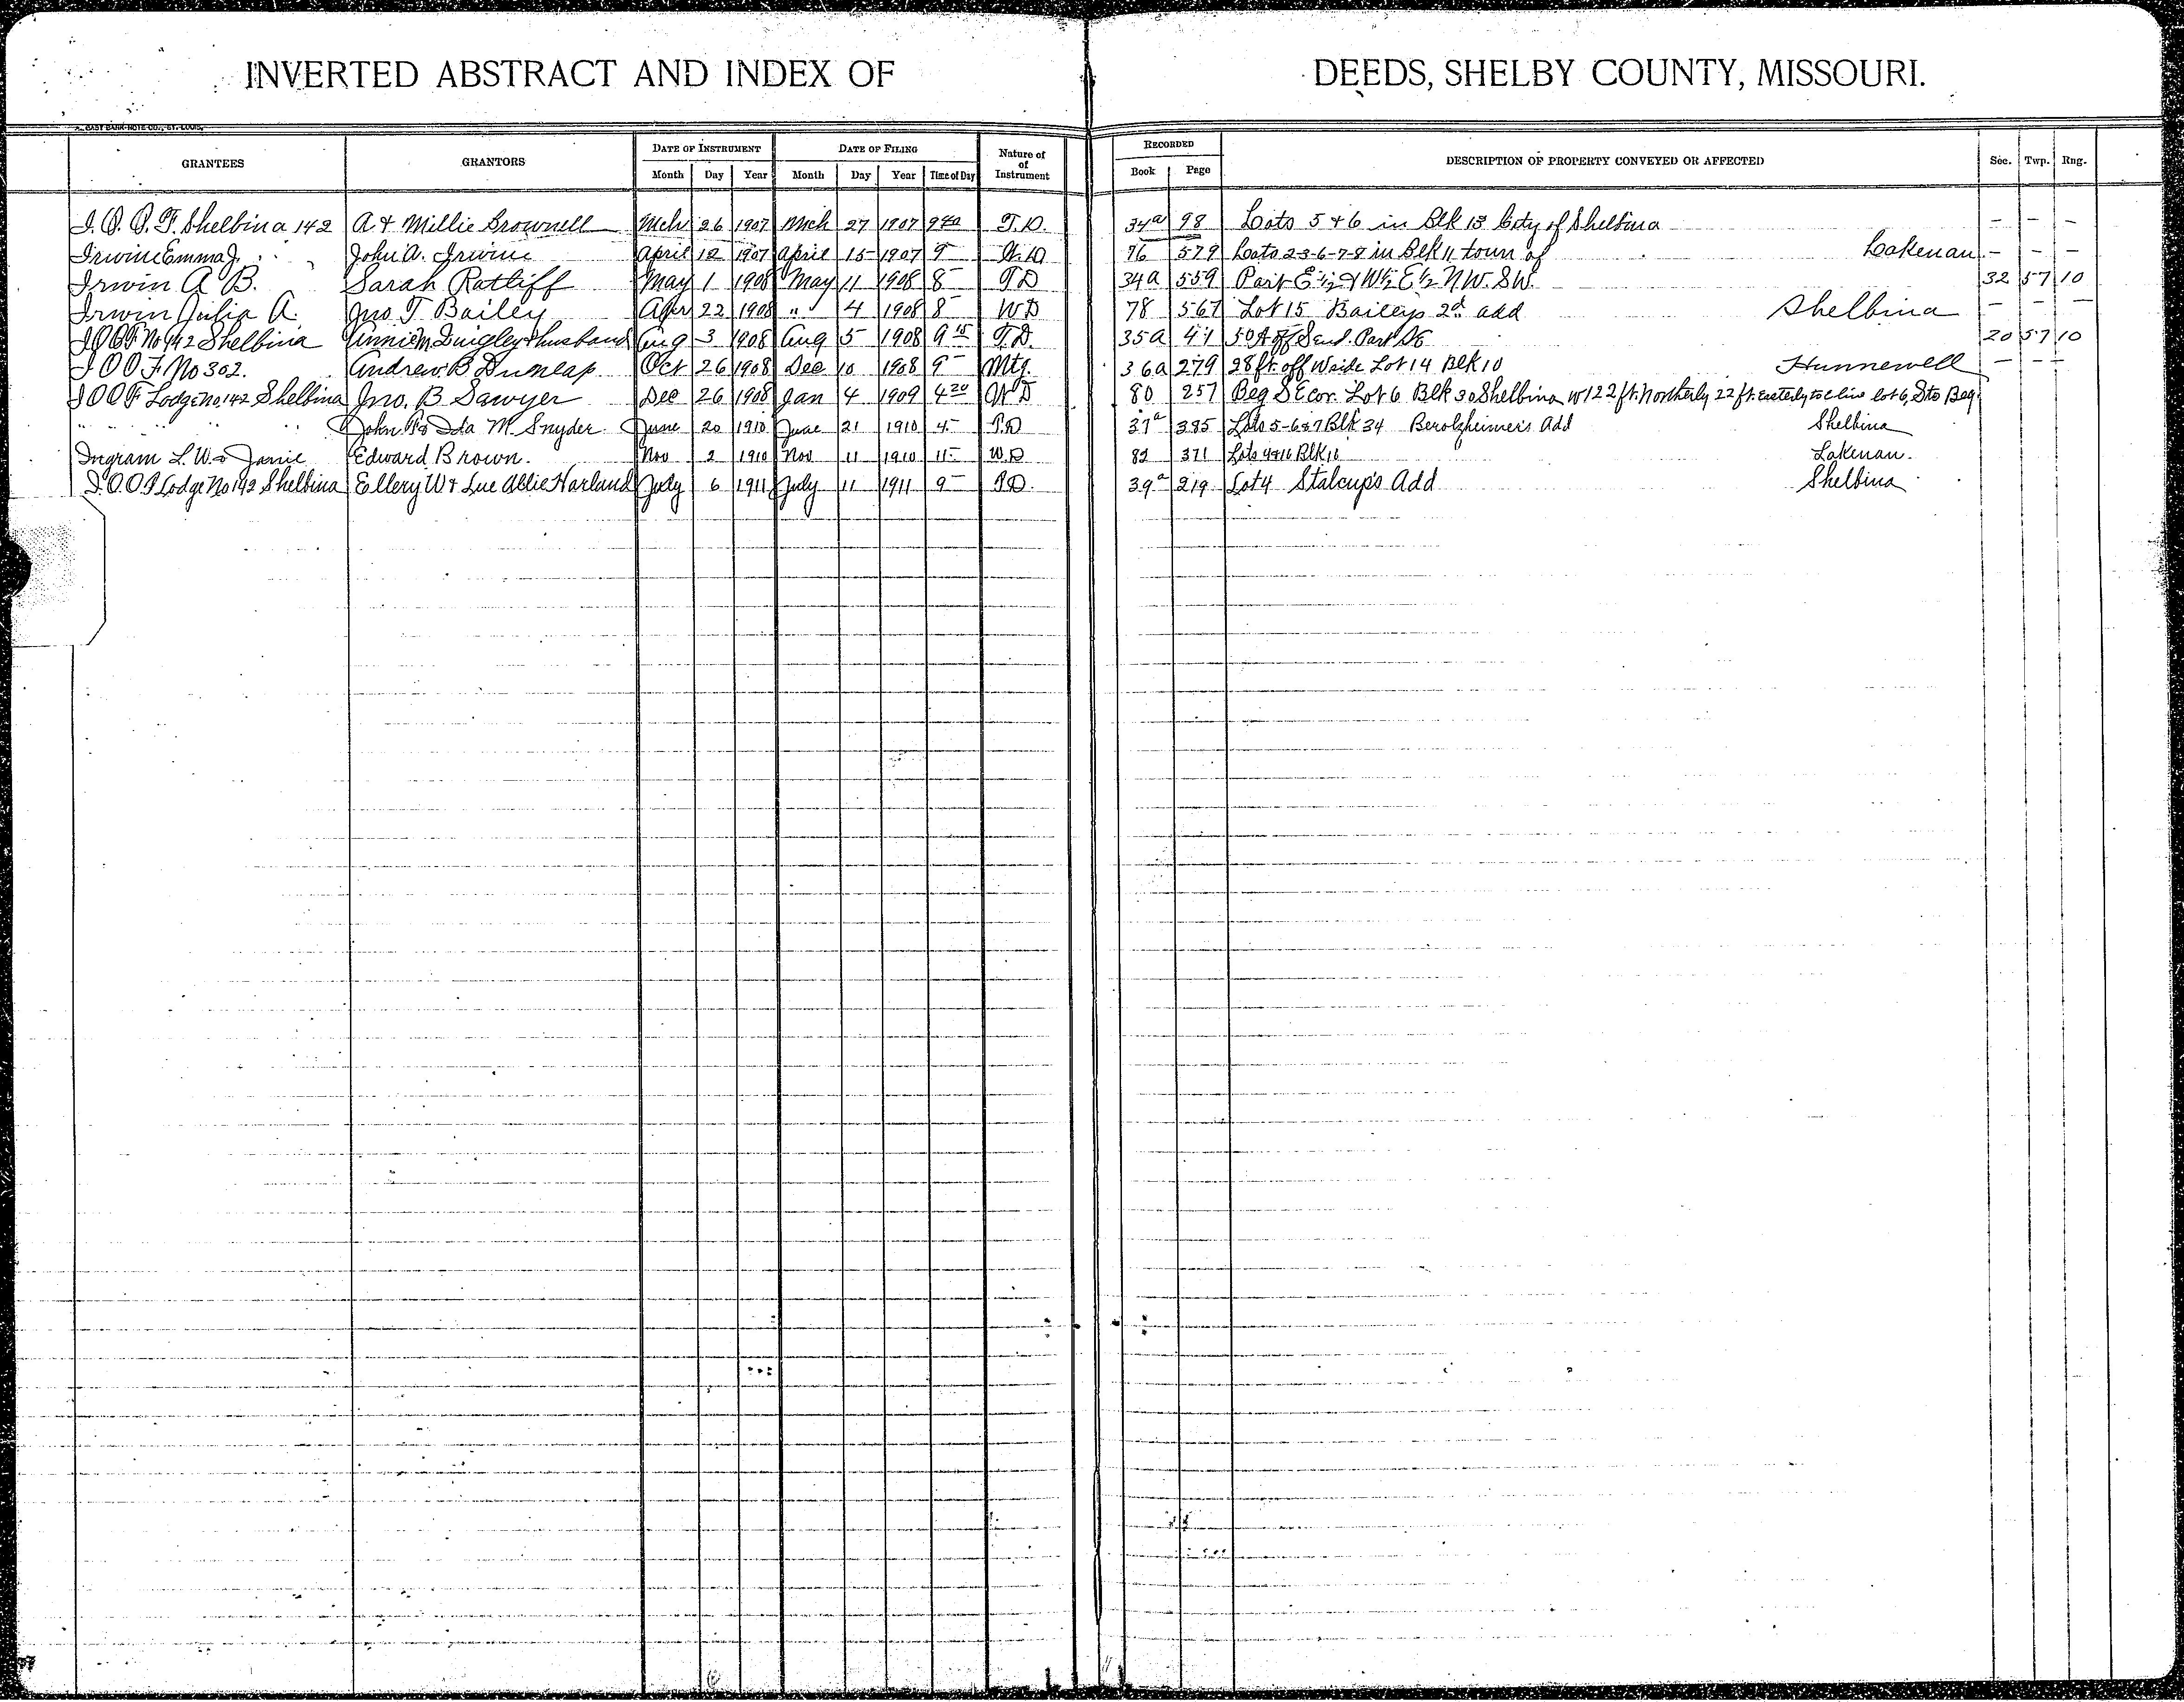 INVERTED ABSTRACT AND INDEX OF DEEDS, SHELBY COUNTY, MISSOURI.
GRANTEES GRANTORS DATE OF INSTRUMENT DATE OF FILING Nature of of Instrument RECORDED DESCRIPTION OF PROPERTY CONVEYED OR AFFECTED Sec. Twp. Rng.
Month Day Year Month Day Year Time of Day Book Page
I.O.O.F. Shelbina 142 A. & Millie Brownell Mch 26 1907 Mch 27 1907 9 40 T.D. 34a 98 Lots 5 & 6 in Blk 13 City of Shelbina — — —
Irwin Emma J. John A. Irwine April 12 1907 April 15 1907 9 — W.D 76 579 Lots 2-3-6-7-8 in Blk 11 town of Lakenan — — —
Irwin A B. Sarah Ratliff May 1 1908 May 11 1908 8 — T D 34a 559 Part E½ & W½ E½ N.W. S.W. 32 57 10
Irwin Julia A. Jno T. Bailey Apr 22 1908 " " 4 1908 8 — W D 78 567 Lot 15 Baileys 2d add Shelbina — — —
I O O F No 142 Shelbina Annie M. Quigley & husband Aug 3 1908 Aug 5 1908 9 15 T.D. 35a 41 50 A off S end Part 20 57 10
I O O F No 302. Andrew B Dunlap Oct 26 1908 Dec 10 1908 9 — Mtg. 36a 279 28 ft. off W side Lot 14 Blk 10 Hunnewell — — —
I O O F Lodge No. 142 Shelbina Jno. B Sawyer Dec 26 1908 Jan 4 1909 4 20 W D 80 257 Beg S E cor. Lot 6 Blk 30 Shelbina W 122 ft. Northerly 22 ft. Easterly to E line lot 6, S to Beg.
" " " John F & Ida M. Snyder June 20 1910 June 21 1910 4 — T.D 37a 385 Lots 5-6 & 7 Blk 34 Berolzheimer's Add Shelbina
Ingram L. W. & Janie Edward Brown. Nov 2 1910 Nov 11 1910 11 — W.D 82 371 Lots Blk 16 Lakenan.
I.O.O.F Lodge No 142 Shelbina Ellery W & Sue Allie Harland July 6 1911 July 11 1911 9 — T.D. 39a 219 Lot 4 Stalcup's Add Shelbina